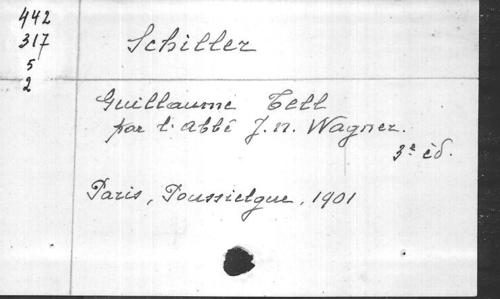 442
317
5
2
Schiller
Guillaume Tell
par l'Abbé J. N. Wagner.
3e éd.
Paris, Poussielgue, 1901